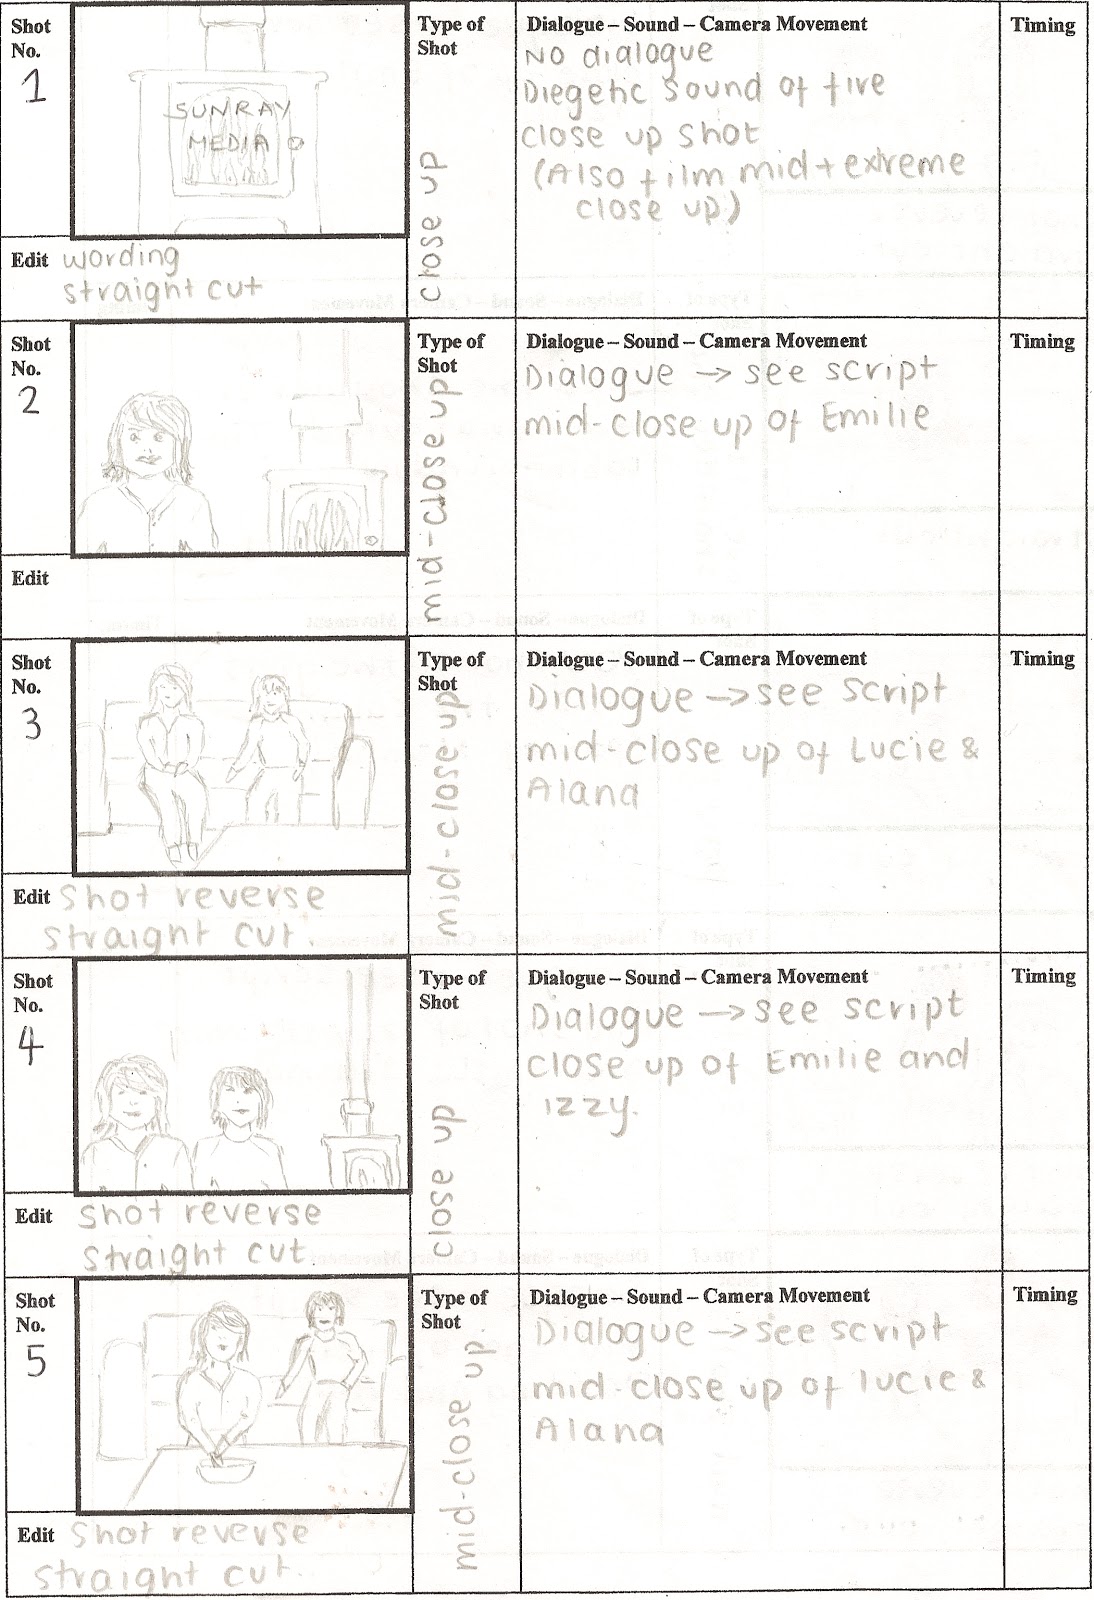 Shot
No.
1
SUNRAY
MEDIA
Edit wording
straight cut
Type of
Shot
close up
Dialogue – Sound – Camera Movement
No dialogue
Diegetic sound of fire
close up shot
(Also film mid + extreme
close up)
Timing
Shot
No.
2
Edit
Type of
Shot
mid-close up
Dialogue – Sound – Camera Movement
Dialogue → see script
mid-close up of Emilie
Timing
Shot
No.
3
Edit Shot reverse
straight cut.
Type of
Shot
mid-close up
Dialogue – Sound – Camera Movement
Dialogue → see script
mid-close up of Lucie &
Alana
Timing
Shot
No.
4
Edit Shot reverse
straight cut
Type of
Shot
close up
Dialogue – Sound – Camera Movement
Dialogue → see script
close up of Emilie and
izzy.
Timing
Shot
No.
5
Edit Shot reverse
straight cut.
Type of
Shot
mid-close up.
Dialogue – Sound – Camera Movement
Dialogue → see script
mid-close up of lucie &
Alana
Timing